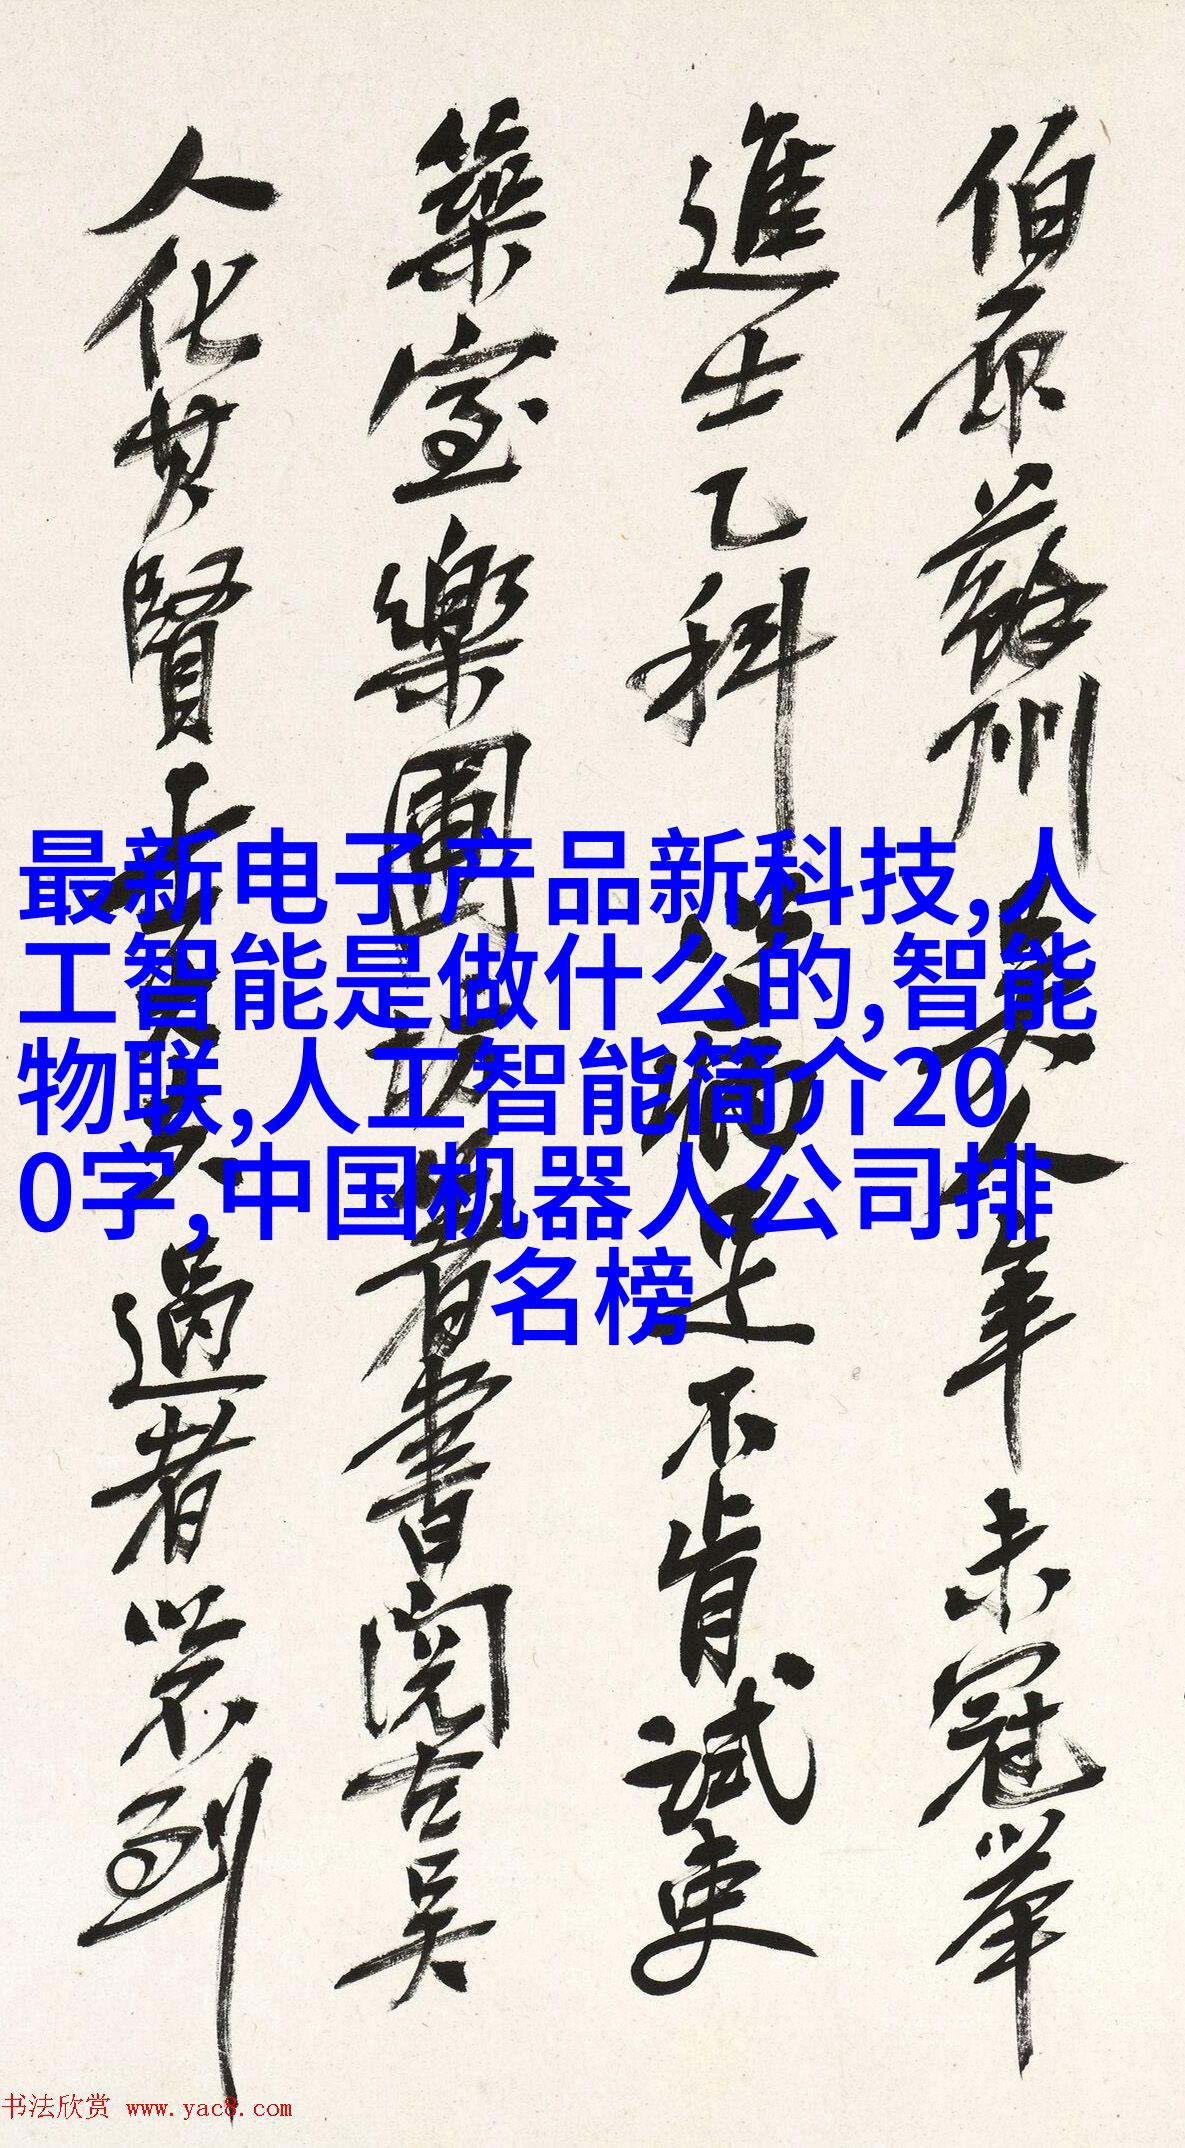 伯原蘇州吳人年未冠舉
進士乙科病足不肯試吏
築室樂圃坊著書閱古吳
人化其賢士大夫過者以不到
最新电子产品新科技,人
工智能是做什么的,智能
物联,人工智能简介20
0字,中国机器人公司排
名榜
书法欣赏 www.yac8.com